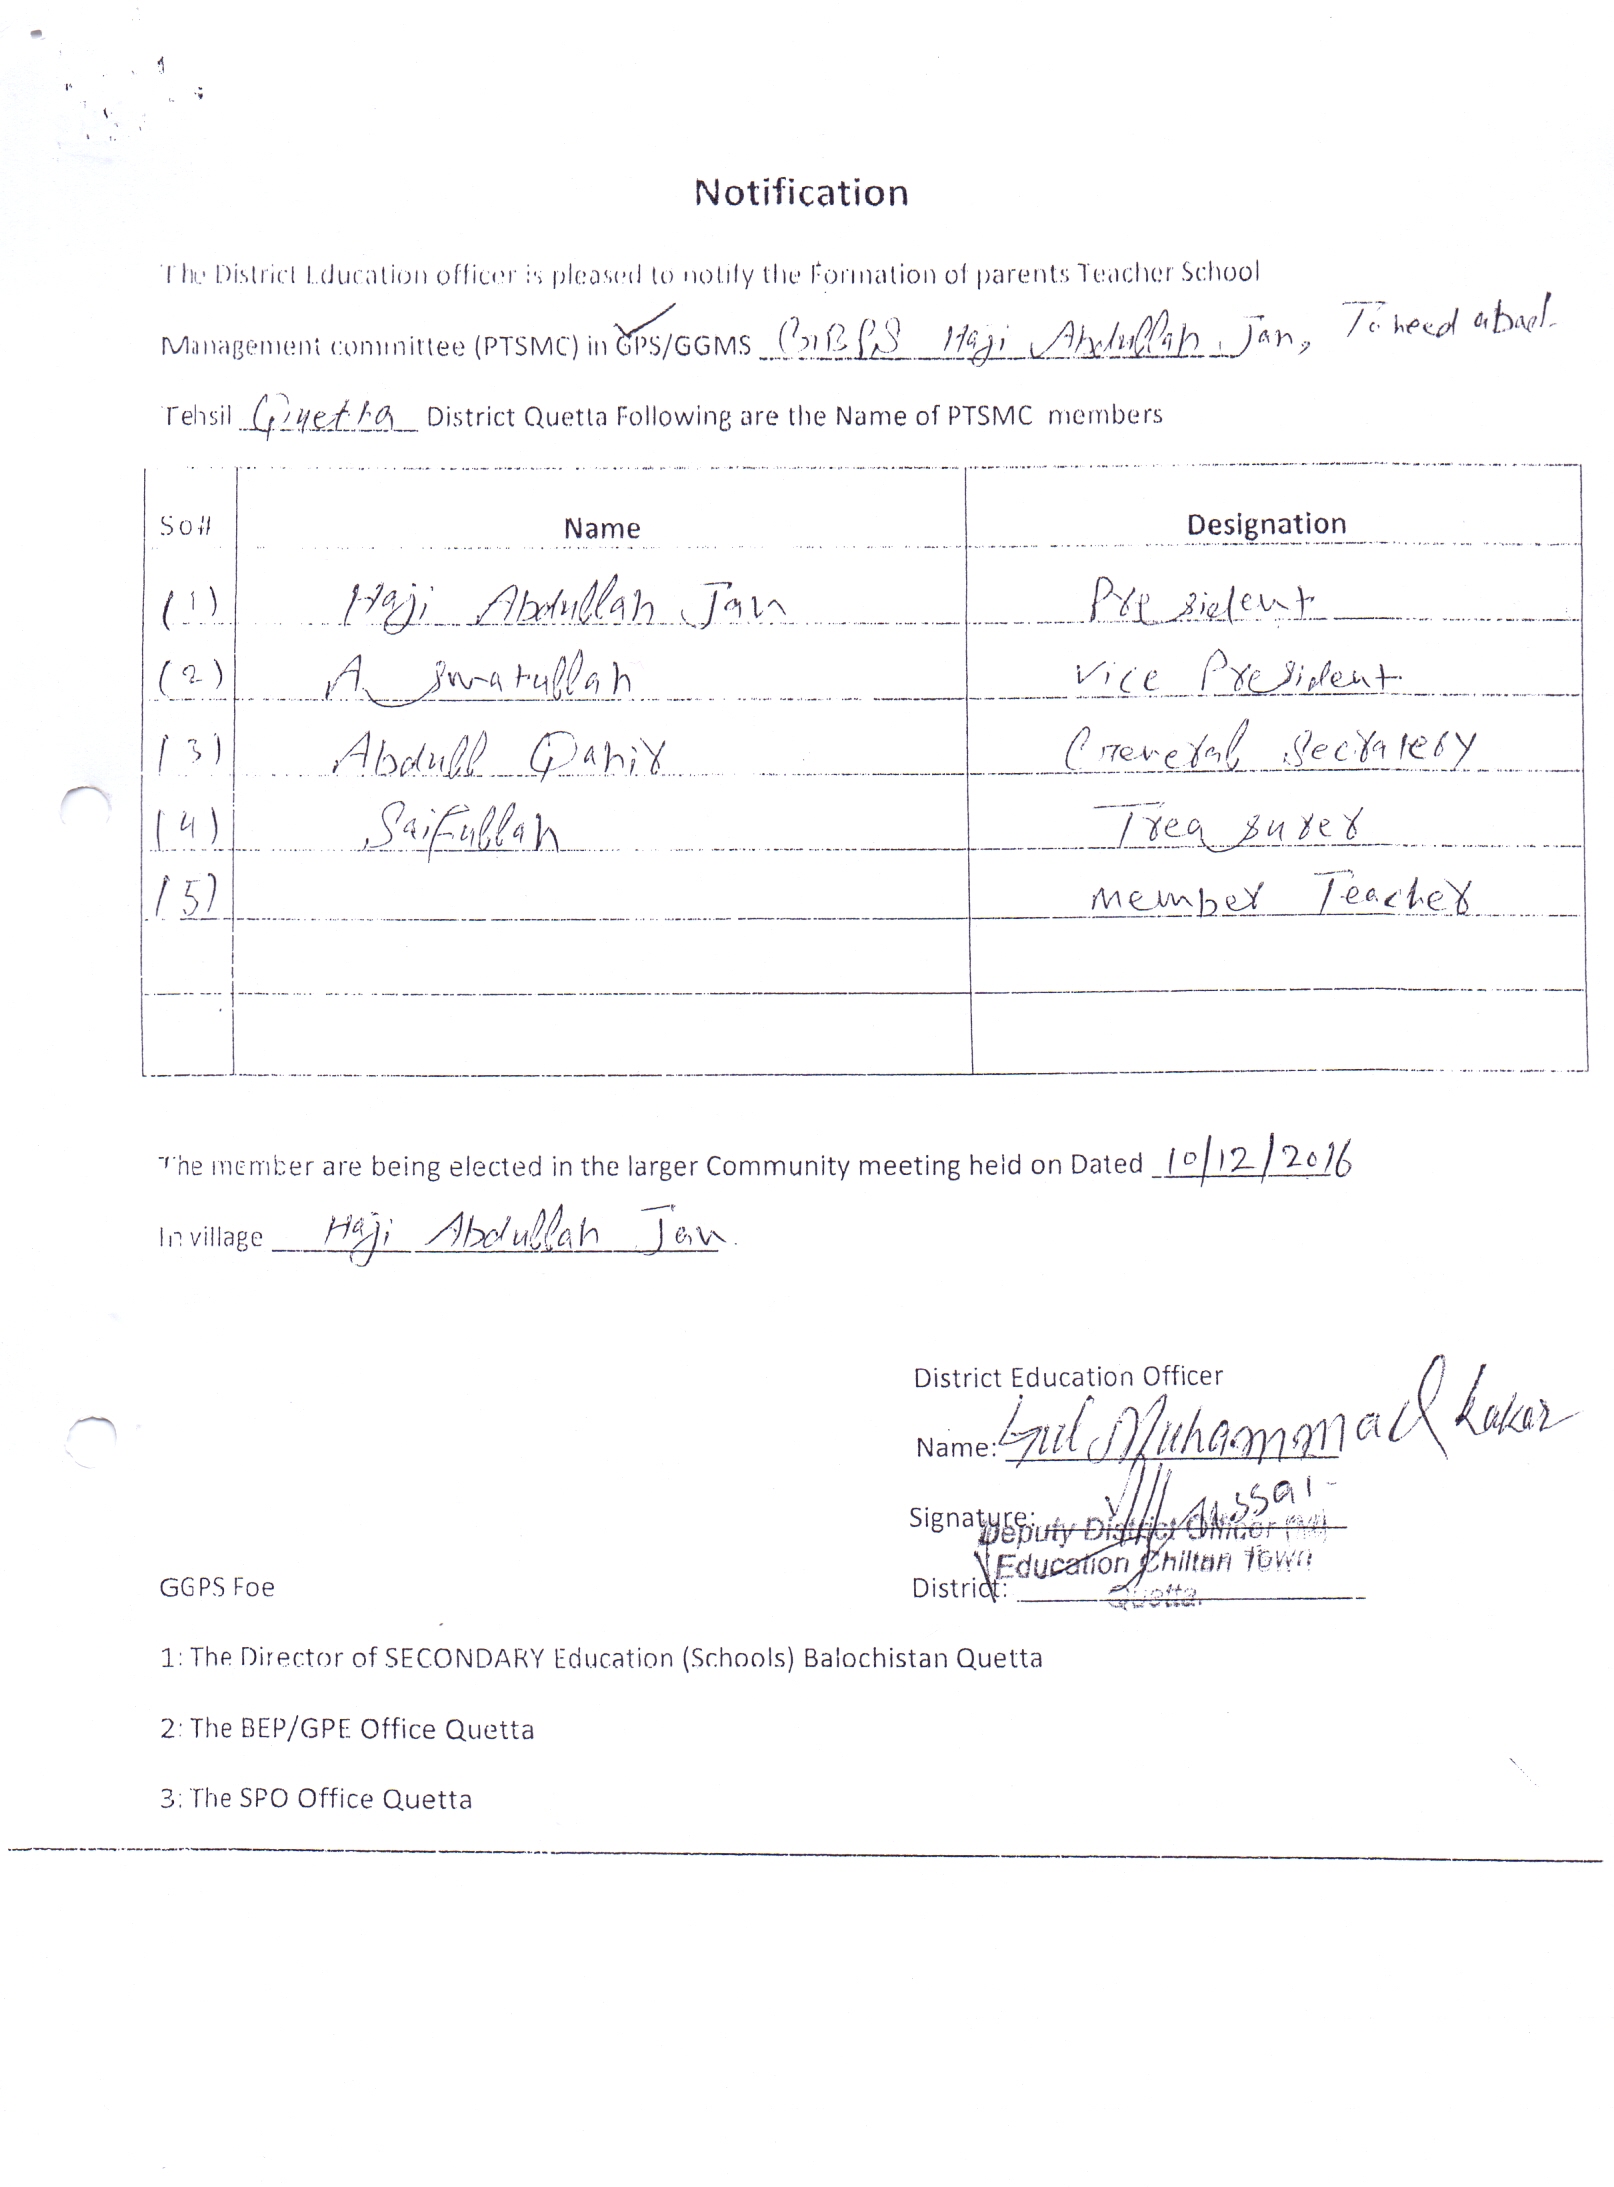 Notification
The District Education officer is pleased to notify the Formation of parents Teacher School
Management committee (PTSMC) in GPS/GGMS GBPS Haji Abdullah Jan, Toheed abad
Tehsil Quetta District Quetta Following are the Name of PTSMC members
So# Name Designation
(1) Haji Abdullah Jan President
(2) Asmatullah Vice President
(3) Abdull Qahir General Secratery
(4) Saifullah Treasurer
(5) member Teacher
The member are being elected in the larger Community meeting held on Dated 10/12/2016
In village Haji Abdullah Jan.
District Education Officer
Name: Gul Muhammad kakar
Signature:
Deputy District Officer (M)
Education Chiltan Town
District:
Quetta.
GGPS Foe
1: The Director of SECONDARY Education (Schools) Balochistan Quetta
2: The BEP/GPE Office Quetta
3: The SPO Office Quetta